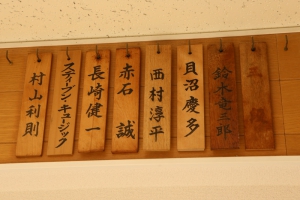 鈴木竜三郎
貝沼慶多
西村淳平
赤石誠
長崎健一
スティーブン・キュージック
村山利則